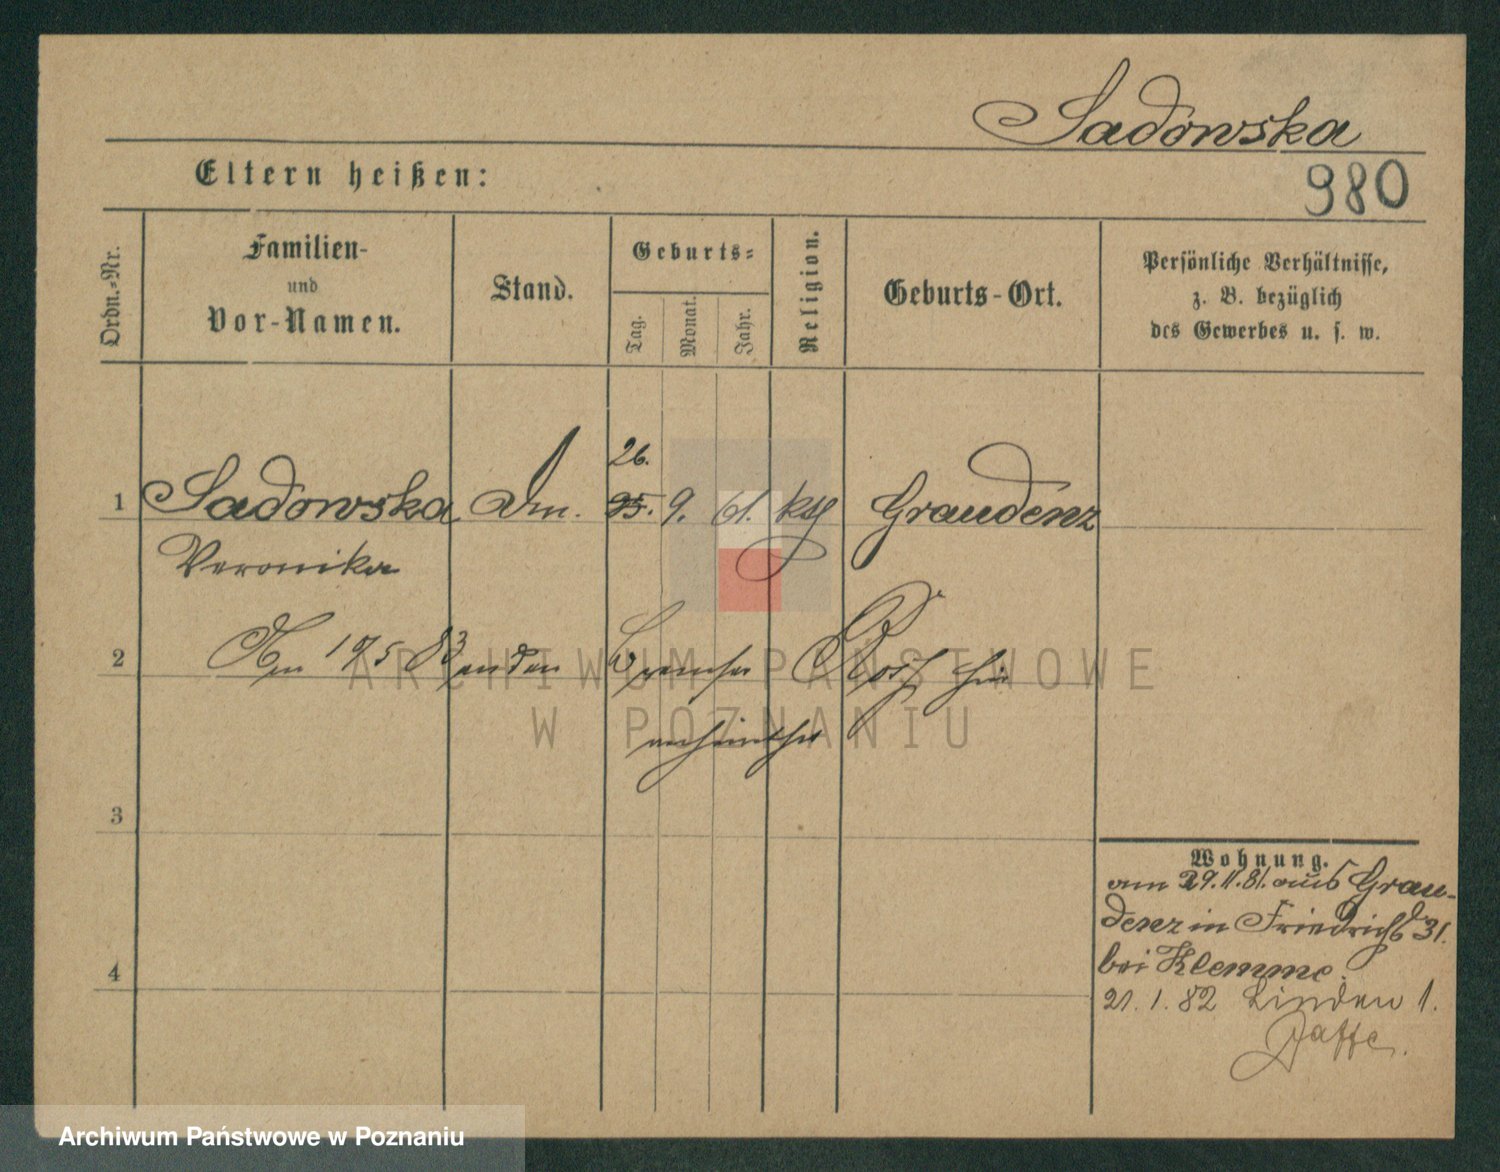 Sadowska
980
Eltern heißen:
Ordn.-Nr.
Familien-
und
Vor-Namen.
Stand.
Geburts-
Tag.
Monat.
Jahr.
Religion.
Geburts-Ort.
Persönliche Verhältnisse,
z. B. bezüglich
des Gewerbes u. s. w.
26.
1 Sadowska Dm. 25. 9. 61. kth Graudenz
Veronika
2 Am 19/5 83 an den
verheirathet
3
4
Wohnung.
am 29.11.81. aus Grau-
denz in Friedrichs 31.
bei Klemme.
21. 1. 82 Linden 1.
Jaffe.
ARCHIWUM PAŃSTWOWE
W POZNANIU
Archiwum Państwowe w Poznaniu